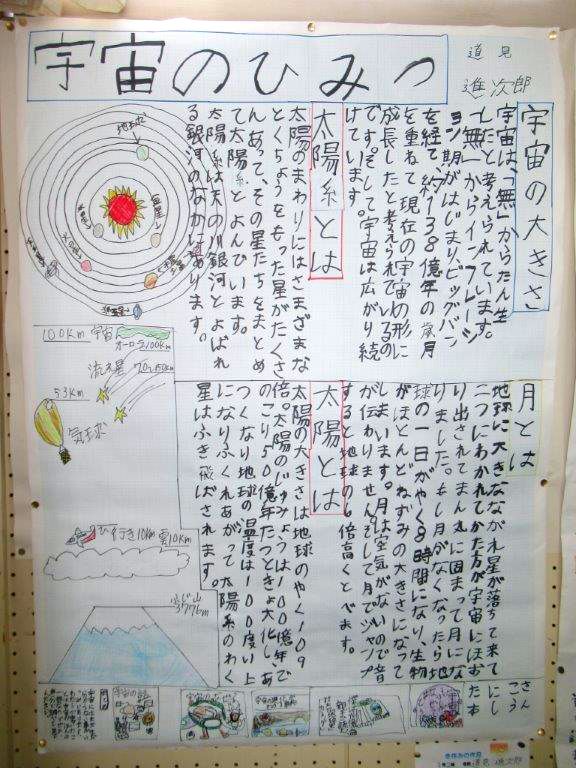 宇宙のひみつ
道見
進次郎
宇宙の大きさ
宇宙は、「無」からたん生
したと考えられています。
「無」からインフレーシ
ョン期がはじまりビッグバン
を経て、約138億年の歳月
を重ねて現在の宇宙の形に
成長したと考えられているの
です。そして宇宙は広がり続
けています。
太陽系とは
太陽のまわりにはさまざまな
とくちょうをもった星がたくさ
んあって、その星たちをまとめ
て太陽系とよんでいます。
太陽系は天の川銀河とよばれ
る銀河のなかにあります。
月とは
地球に大きなながれ星が落ちて来て
二つにわかれてかた方が宇宙にほお
り出されてまん丸に固まって月にな
りました。もし月がなくなったら地
球の一日がやく8時間になり、生物
がほとんどねずみの大きさになって
しまいます。月は空気がないので音
が伝わりません。そして月でジャンプ
すると地球の6倍高くとべます。
太陽とは
太陽の大きさは地球のやく109
倍。太陽のじゅみょうは100億年で、
のこり50億年たつときょ大化し、あ
つくなり地球の温度は100度以上
になりふくれあがって太陽系のわく
星はふき飛ばされます。
地球
100km 宇宙
オーロラ100km
流れ星 70〜150km
53km
気球
ひ行き10km 雲10km
ふじ山
3776m
さん
こう
にし
た本
道見進次郎